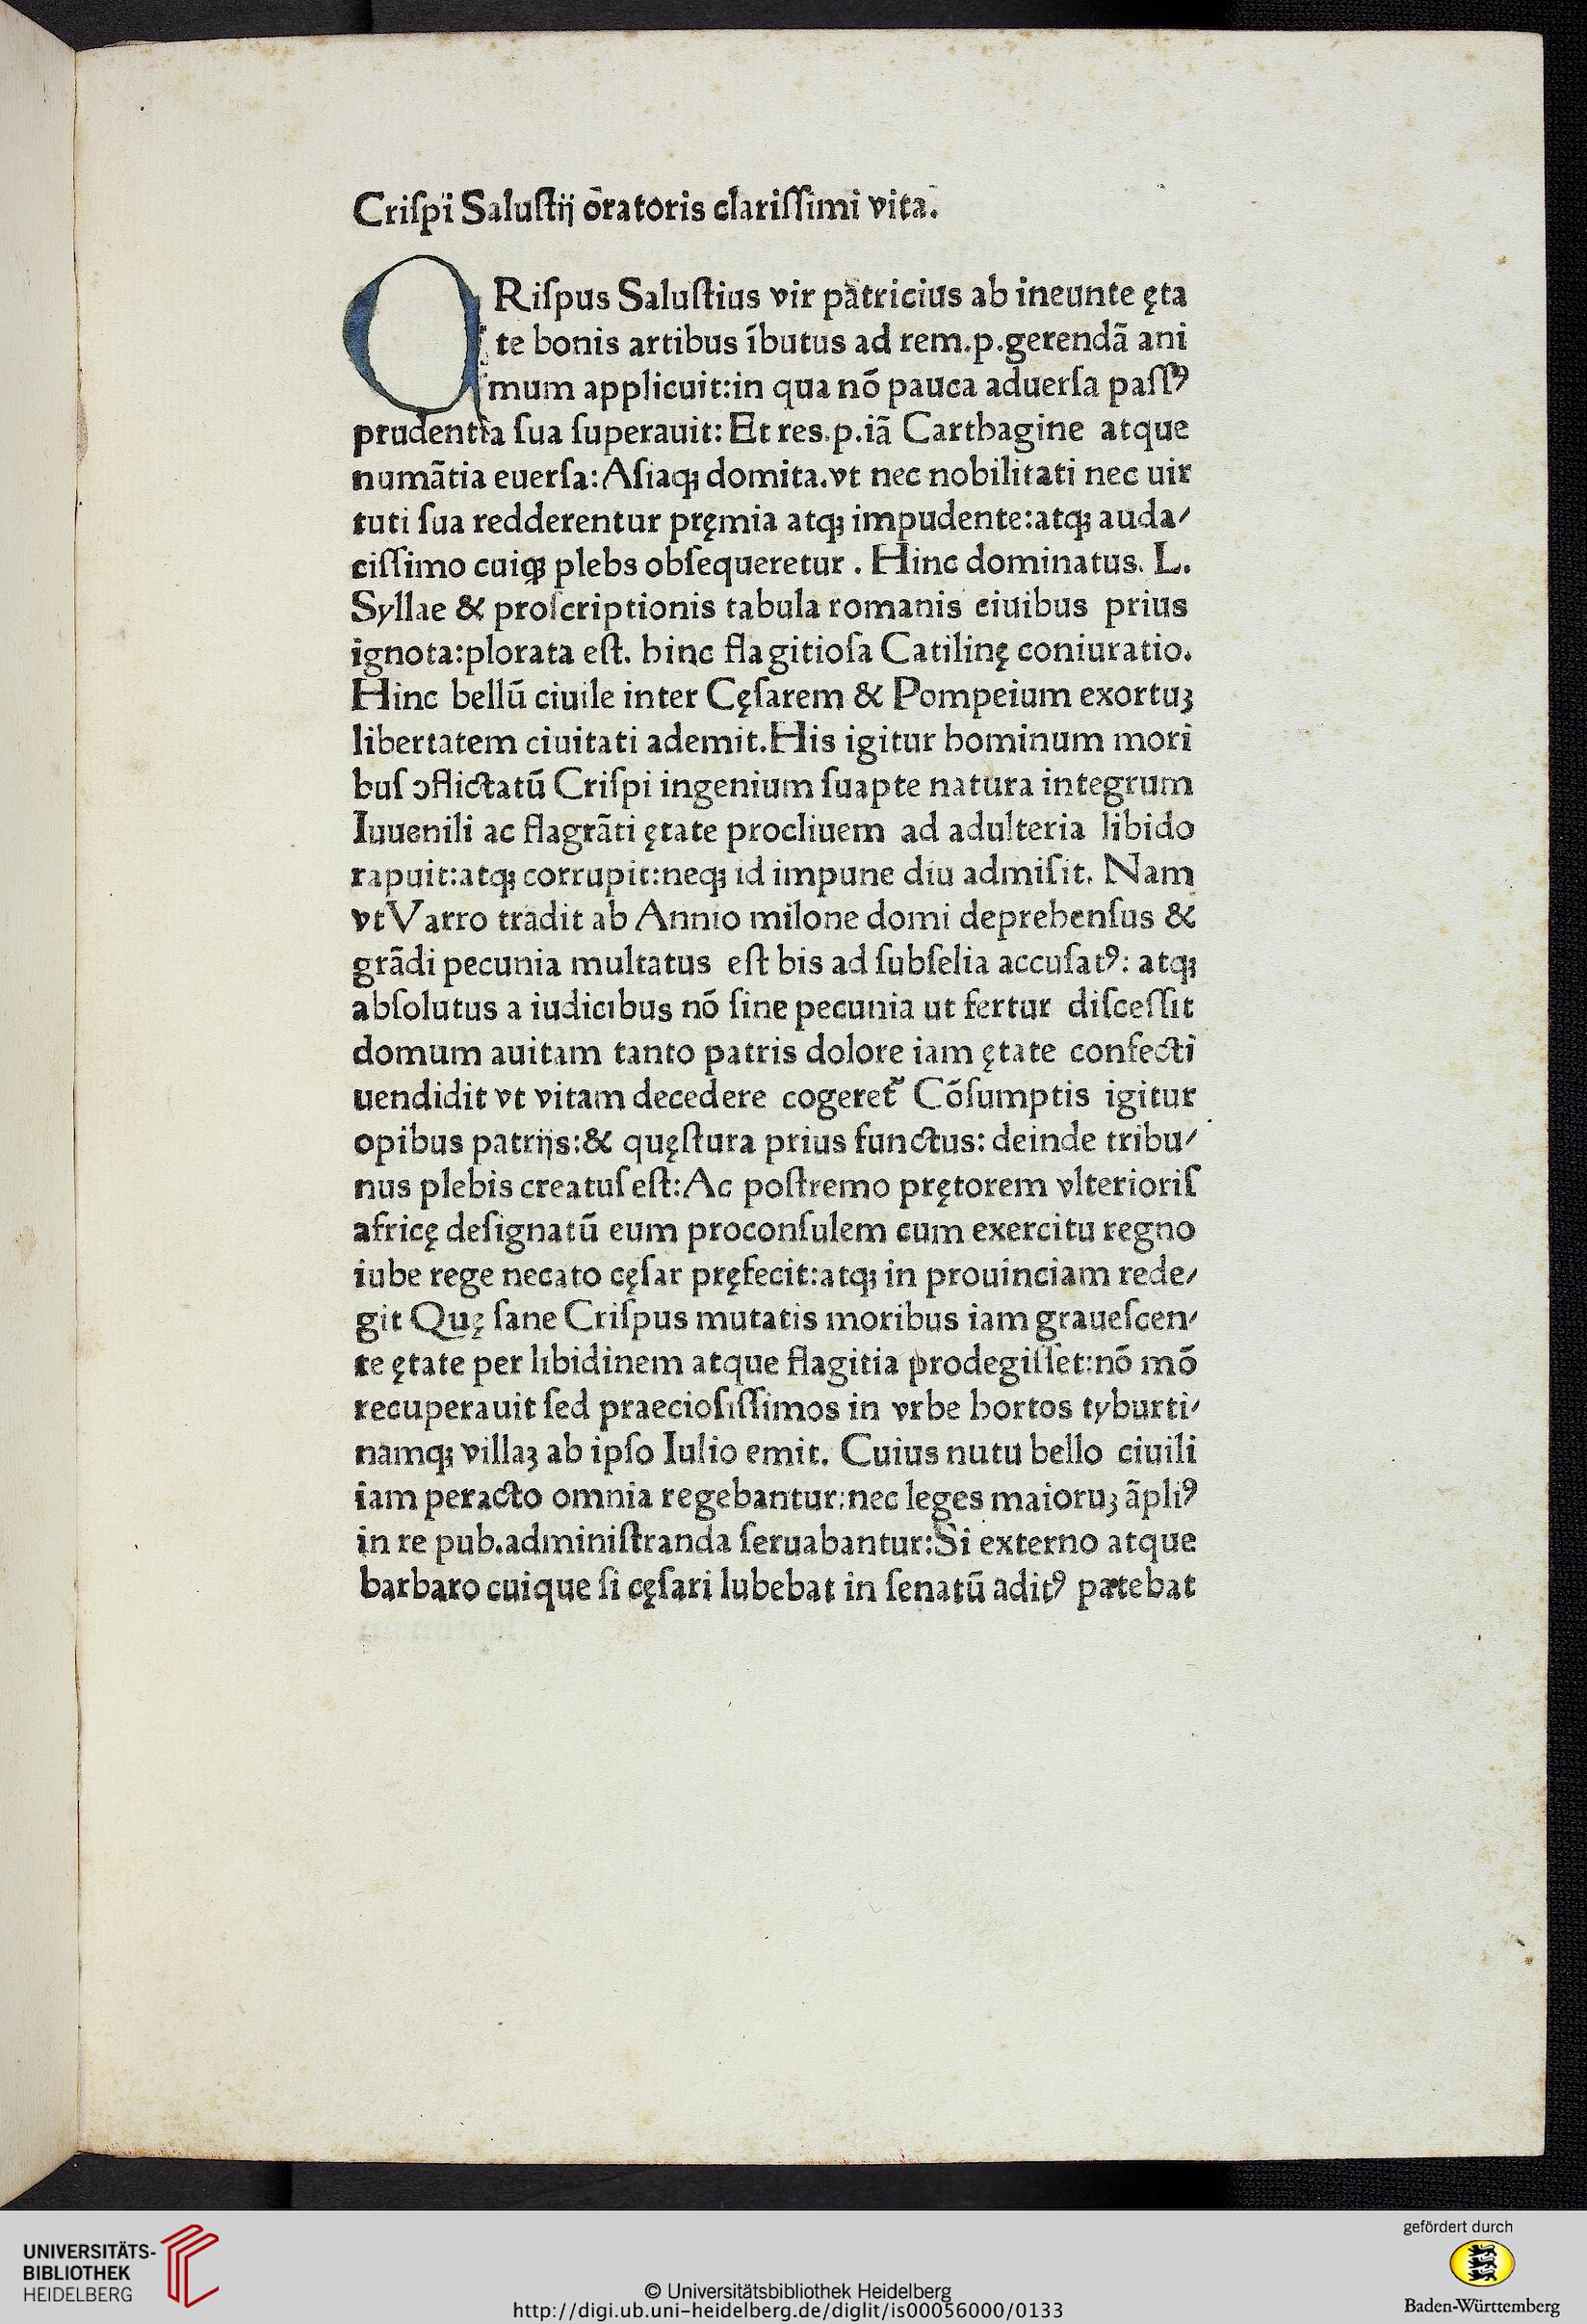 Criſpi Saluſtij oratoris clariſſimi vita.
Q Riſpus Saluſtius vir patricius ab ineunte ęta
te bonis artibus ĩbutus ad rem.p.gerendã ani
mum applicuit:in qua nõ pauca aduerſa paſſꝰ
prudentia ſua ſuperauit: Et res.p.iã Carthagine atque
numãtia euerſa:Aſiaqꝫ domita.vt nec nobilitati nec uir
tuti ſua redderentur pręmia atqꝫ impudente:atqꝫ auda⸗
ciſſimo cuiqꝫ plebs obſequeretur . Hinc dominatus. L.
Syllae & proſcriptionis tabula romanis ciuibus prius
ignota:plorata eſt. hinc flagitioſa Catilinę coniuratio.
Hinc bellũ ciuile inter Cęſarem & Pompeium exortuꝫ
libertatem ciuitati ademit.His igitur hominum mori
buſ ɔflictatũ Criſpi ingenium ſuapte natura integrum
Iuuenili ac flagrãti ętate procliuem ad adulteria libido
rapuit:atqꝫ corrupit:neqꝫ id impune diu admiſit. Nam
vt Varro tradit ab Annio milone domi deprehenſus &
grãdi pecunia multatus eſt bis ad ſubſelia accuſatꝰ: atqꝫ
abſolutus a iudicibus nõ ſine pecunia ut fertur diſceſſit
domum auitam tanto patris dolore iam ętate confecti
uendidit vt vitam decedere cogeret᷑ Cõſumptis igitur
opibus patrijs:& quęſtura prius functus: deinde tribu⸗
nus plebis creatuſ eſt:Ac poſtremo prętorem vlterioriſ
africę deſignatũ eum proconſulem cum exercitu regno
iube rege necato cęſar pręfecit:atqꝫ in prouinciam rede⸗
git Quę ſane Criſpus mutatis moribus iam graueſcen⸗
te ętate per libidinem atque flagitia prodegiſſet:nõ mõ
recuperauit ſed praecioſiſſimos in vrbe hortos tyburti⸗
namqꝫ villaꝫ ab ipſo Iulio emit. Cuius nutu bello ciuili
iam peracto omnia regebantur:nec leges maioruꝫ ãpliꝰ
in re pub.adminiſtranda ſeruabantur:Si externo atque
barbaro cuique ſi cęſari lubebat in ſenatũ aditꝰ patebat
UNIVERSITÄTS-
BIBLIOTHEK
HEIDELBERG
© Universitätsbibliothek Heidelberg
http://digi.ub.uni-heidelberg.de/diglit/is00056000/0133
gefördert durch
Baden-Württemberg